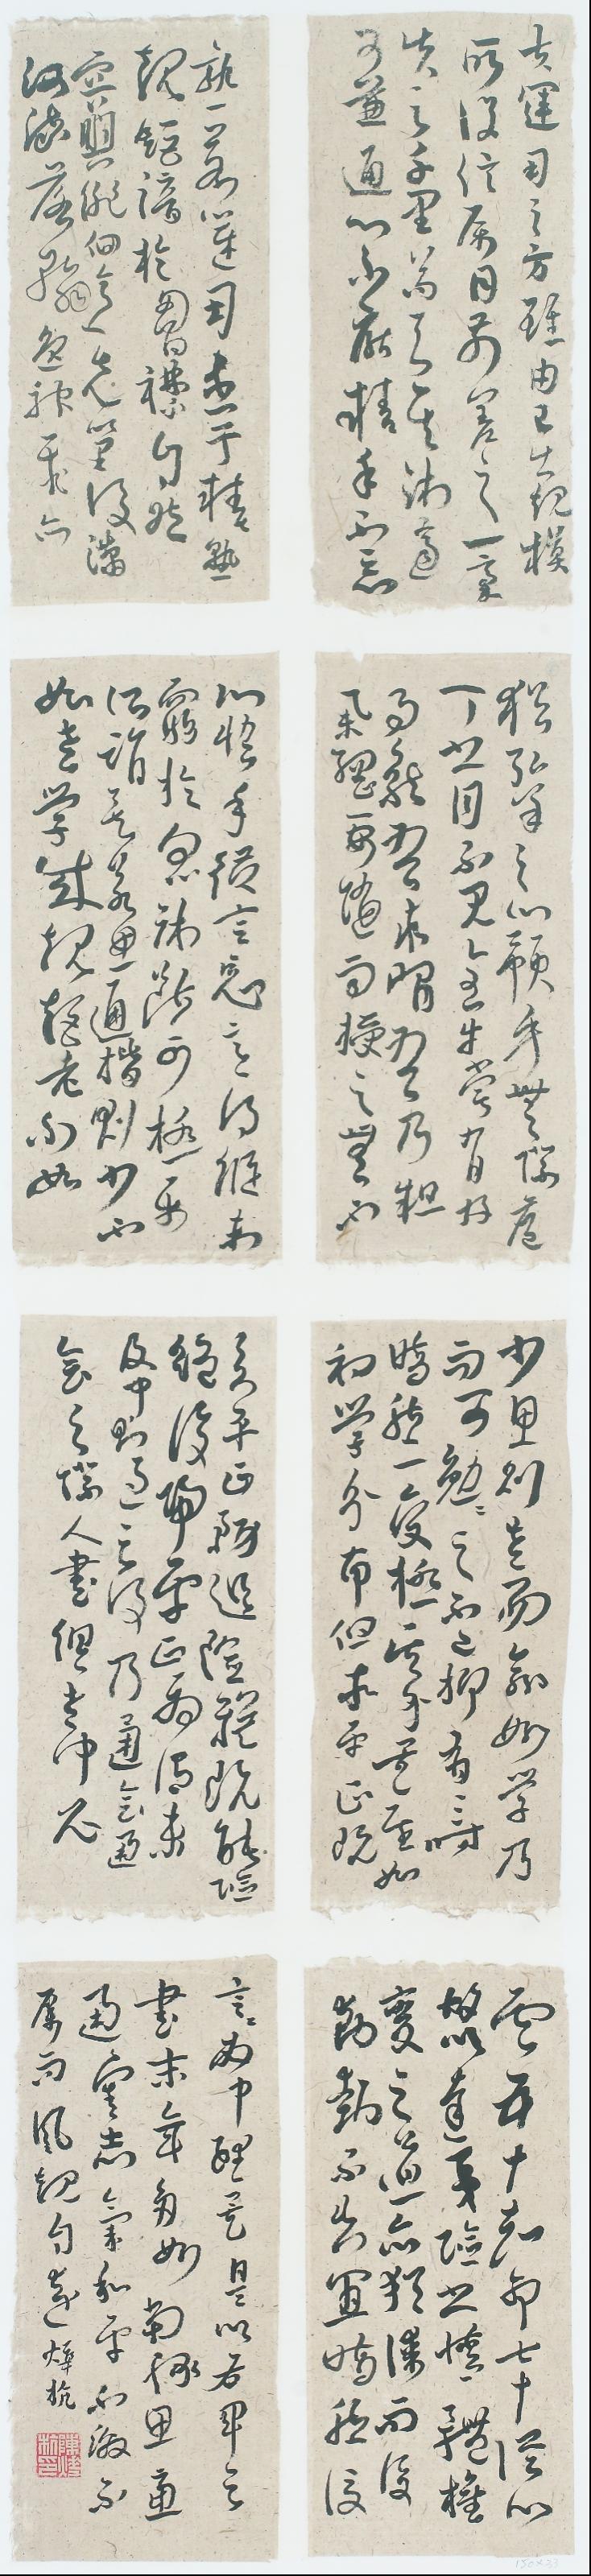 夫運用之方雖由己出規模
所設信屬目前差之一毫
失之千里苟知其術適
可兼通心不厭精手不忘
熟若運用盡于精熟
規矩諳於胸襟自然
容與徘徊意先筆後瀟
灑流落翰逸神飛亦
猶弘羊之心預乎無際庖
丁之目不見全牛嘗有好
事就吾求習吾乃粗
舉綱要隨而授之無不
心悟手從言忘意得縱未
窮於眾術斷可極於
所詣矣若思通楷則少不
如老學成規矩老不如
少思則老而愈妙學乃
而可勉勉之不已抑有三時
時然一變極其分矣至如
初學分布但求平正既
知平正務追險絕既能險
絕復歸平正初謂未
及中則過之後乃通會通
會之際人書俱老仲尼
云五十知命七十從心
故以達夷險之情體權
變之道亦猶謀而後
動動不失宜時然後
言言必中理矣是以右軍之
書末年多妙當緣思慮
通審志氣和平不激不
厲而風規自遠